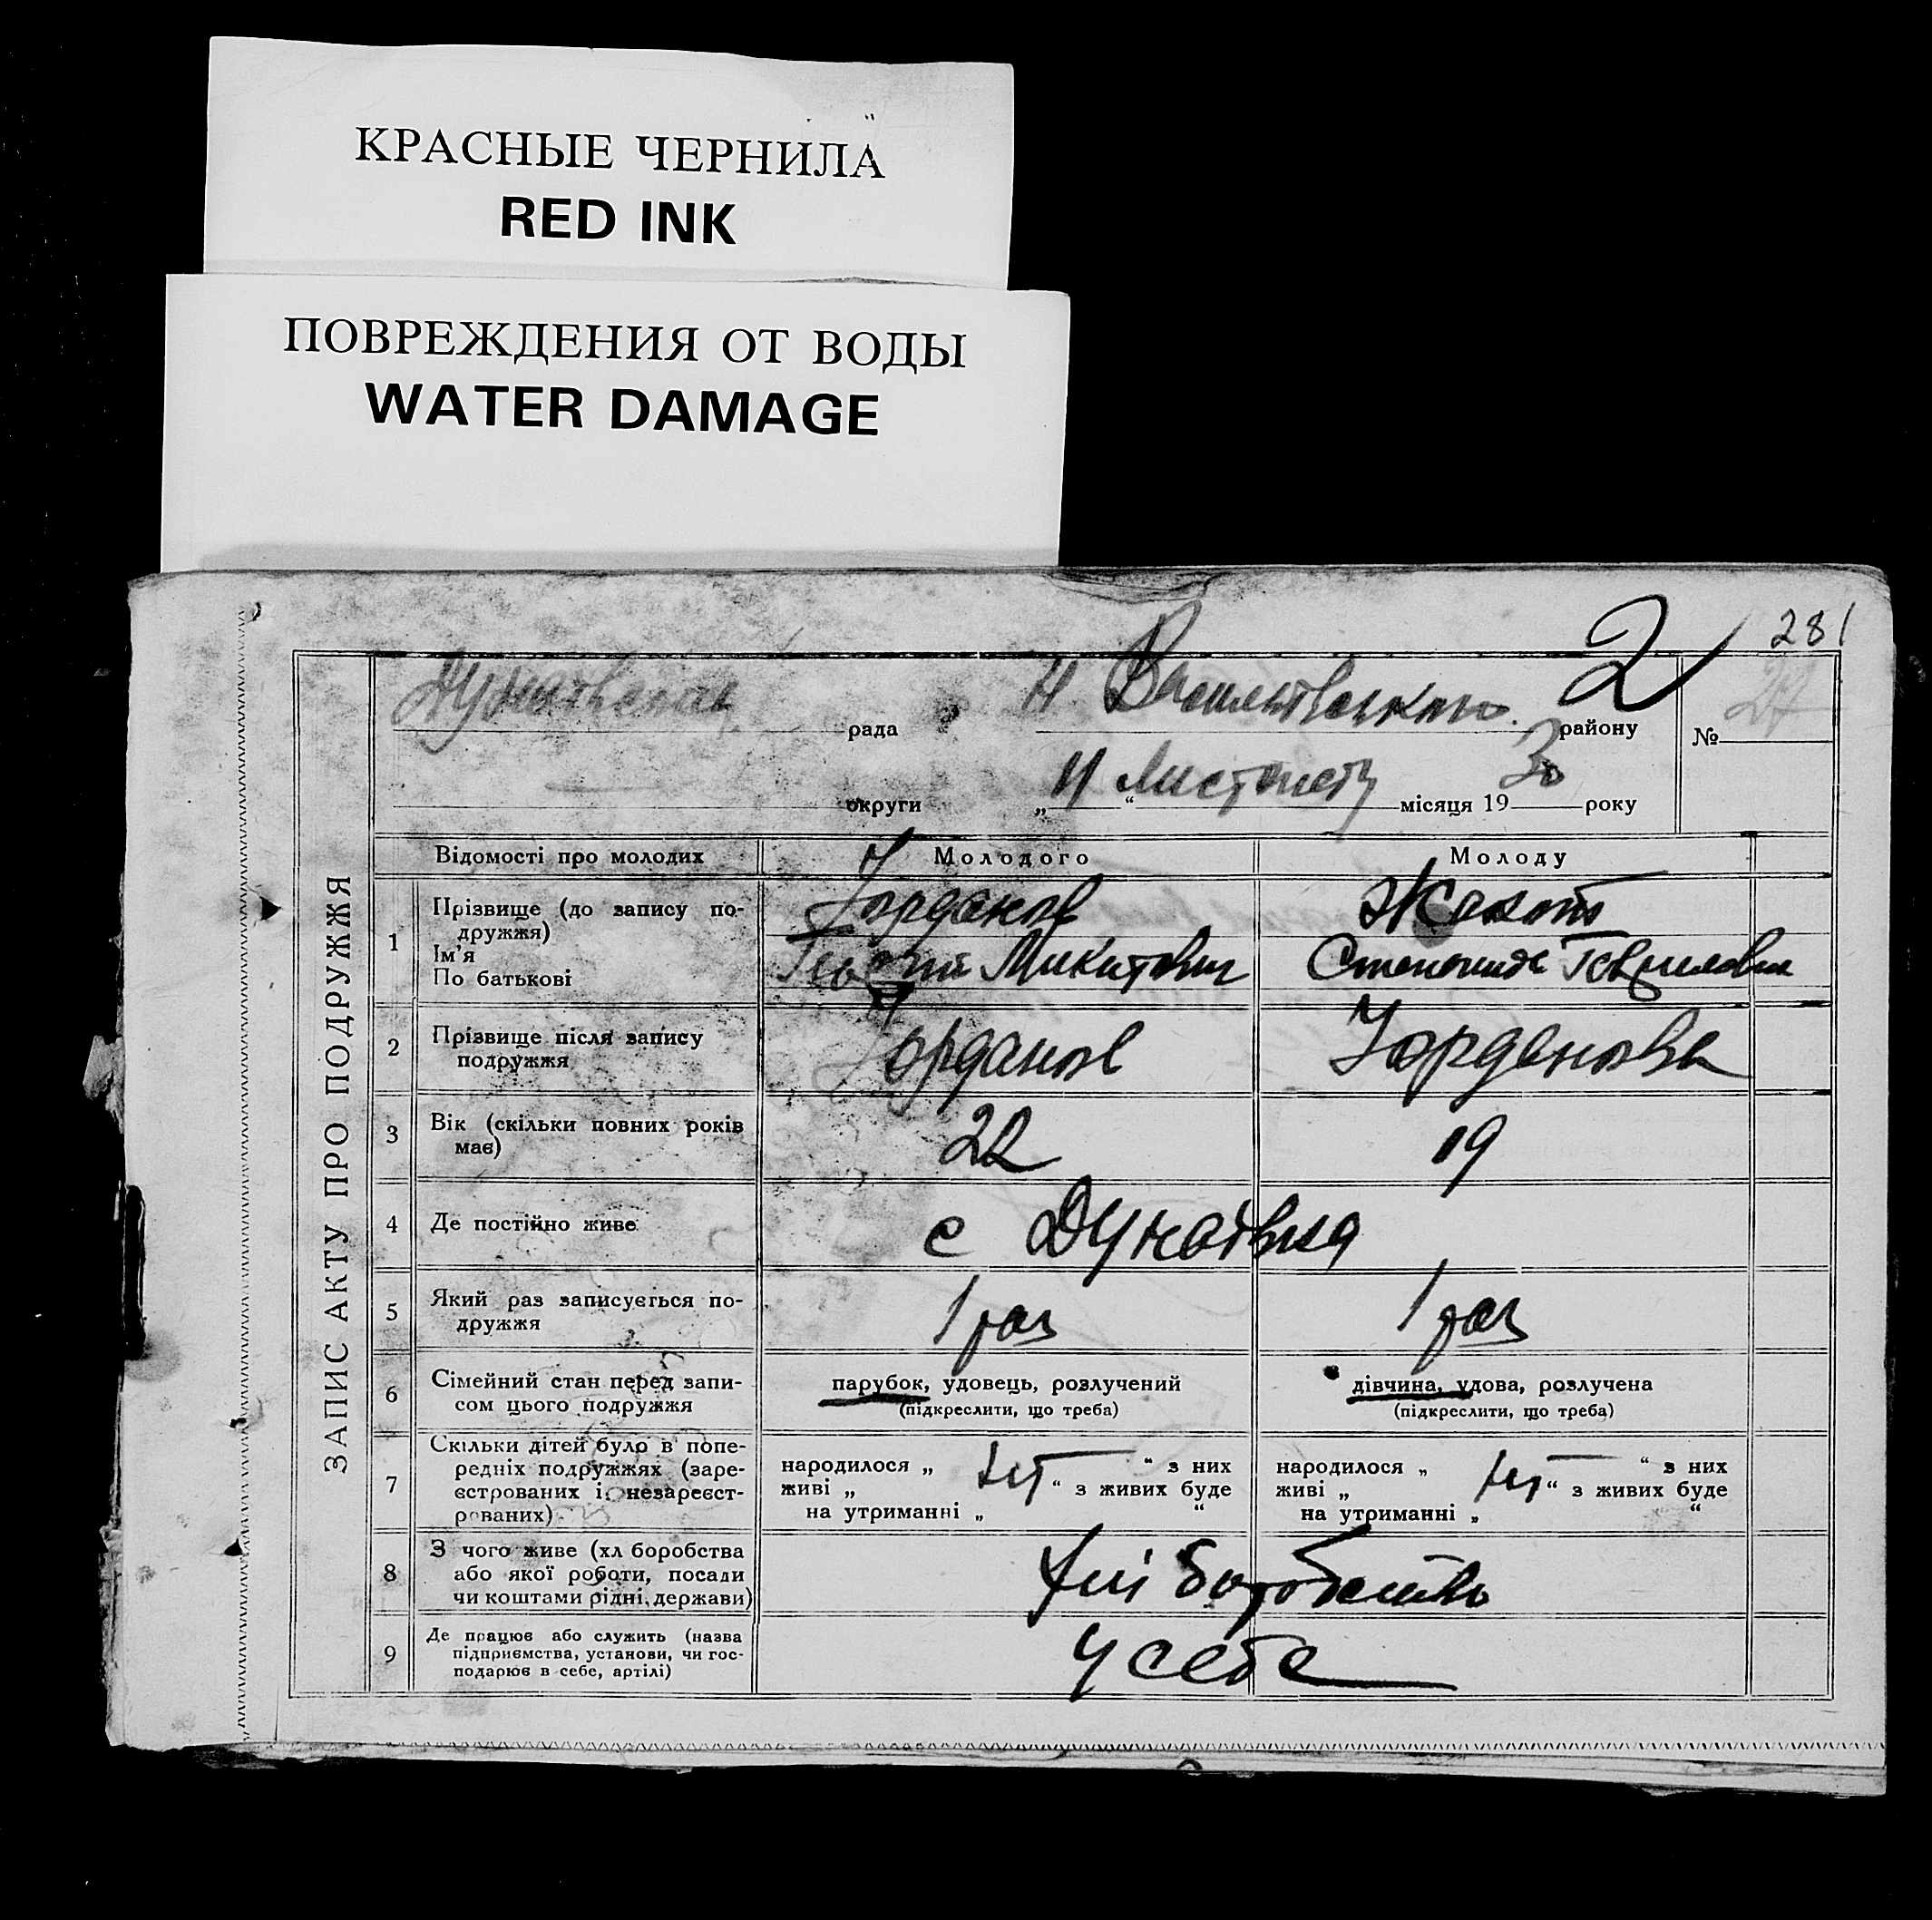 КРАСНЫЕ ЧЕРНИЛА
RED INK
ПОВРЕЖДЕНИЯ ОТ ВОДЫ
WATER DAMAGE
281
2
ЗАПИС АКТУ ПРО ПОДРУЖЖЯ
рада Н. Васильївського району № 27
округи „11“ листопаду місяця 1930 року
Відомості про молодих Молодого Молоду
1 Прізвище (до запису по- Йорданов
дружжя)
Ім’я Микитович Степанида Гавриловна
По батькові
2 Прізвище після запису Йорданов Йорданова
подружжя
3 Вік (скільки повних років 22 19
має)
4 Де постійно живе с Дунаївка
5 Який раз записується по- 1 раз 1 раз
дружжя
6 Сімейний стан перед запи- парубок, удовець, розлучений дівчина, удова, розлучена
сом цього подружжя (підкреслити, що треба) (підкреслити, що треба)
7 Скільки дітей було в попе- народилося „ нет “ з них народилося „ нет “ з них
редніх подружжях (заре- живі „ “ з живих буде живі „ “ з живих буде
єстрованих і незареєст- на утриманні „ “ на утриманні „ “
рованих)
8 З чого живе (хл боробства хліборобство
або якої роботи, посади
чи коштами рідні, держави)
9 Де працює або служить (назва у себе
підприємства, установи, чи гос-
подарює в себе, артілі)